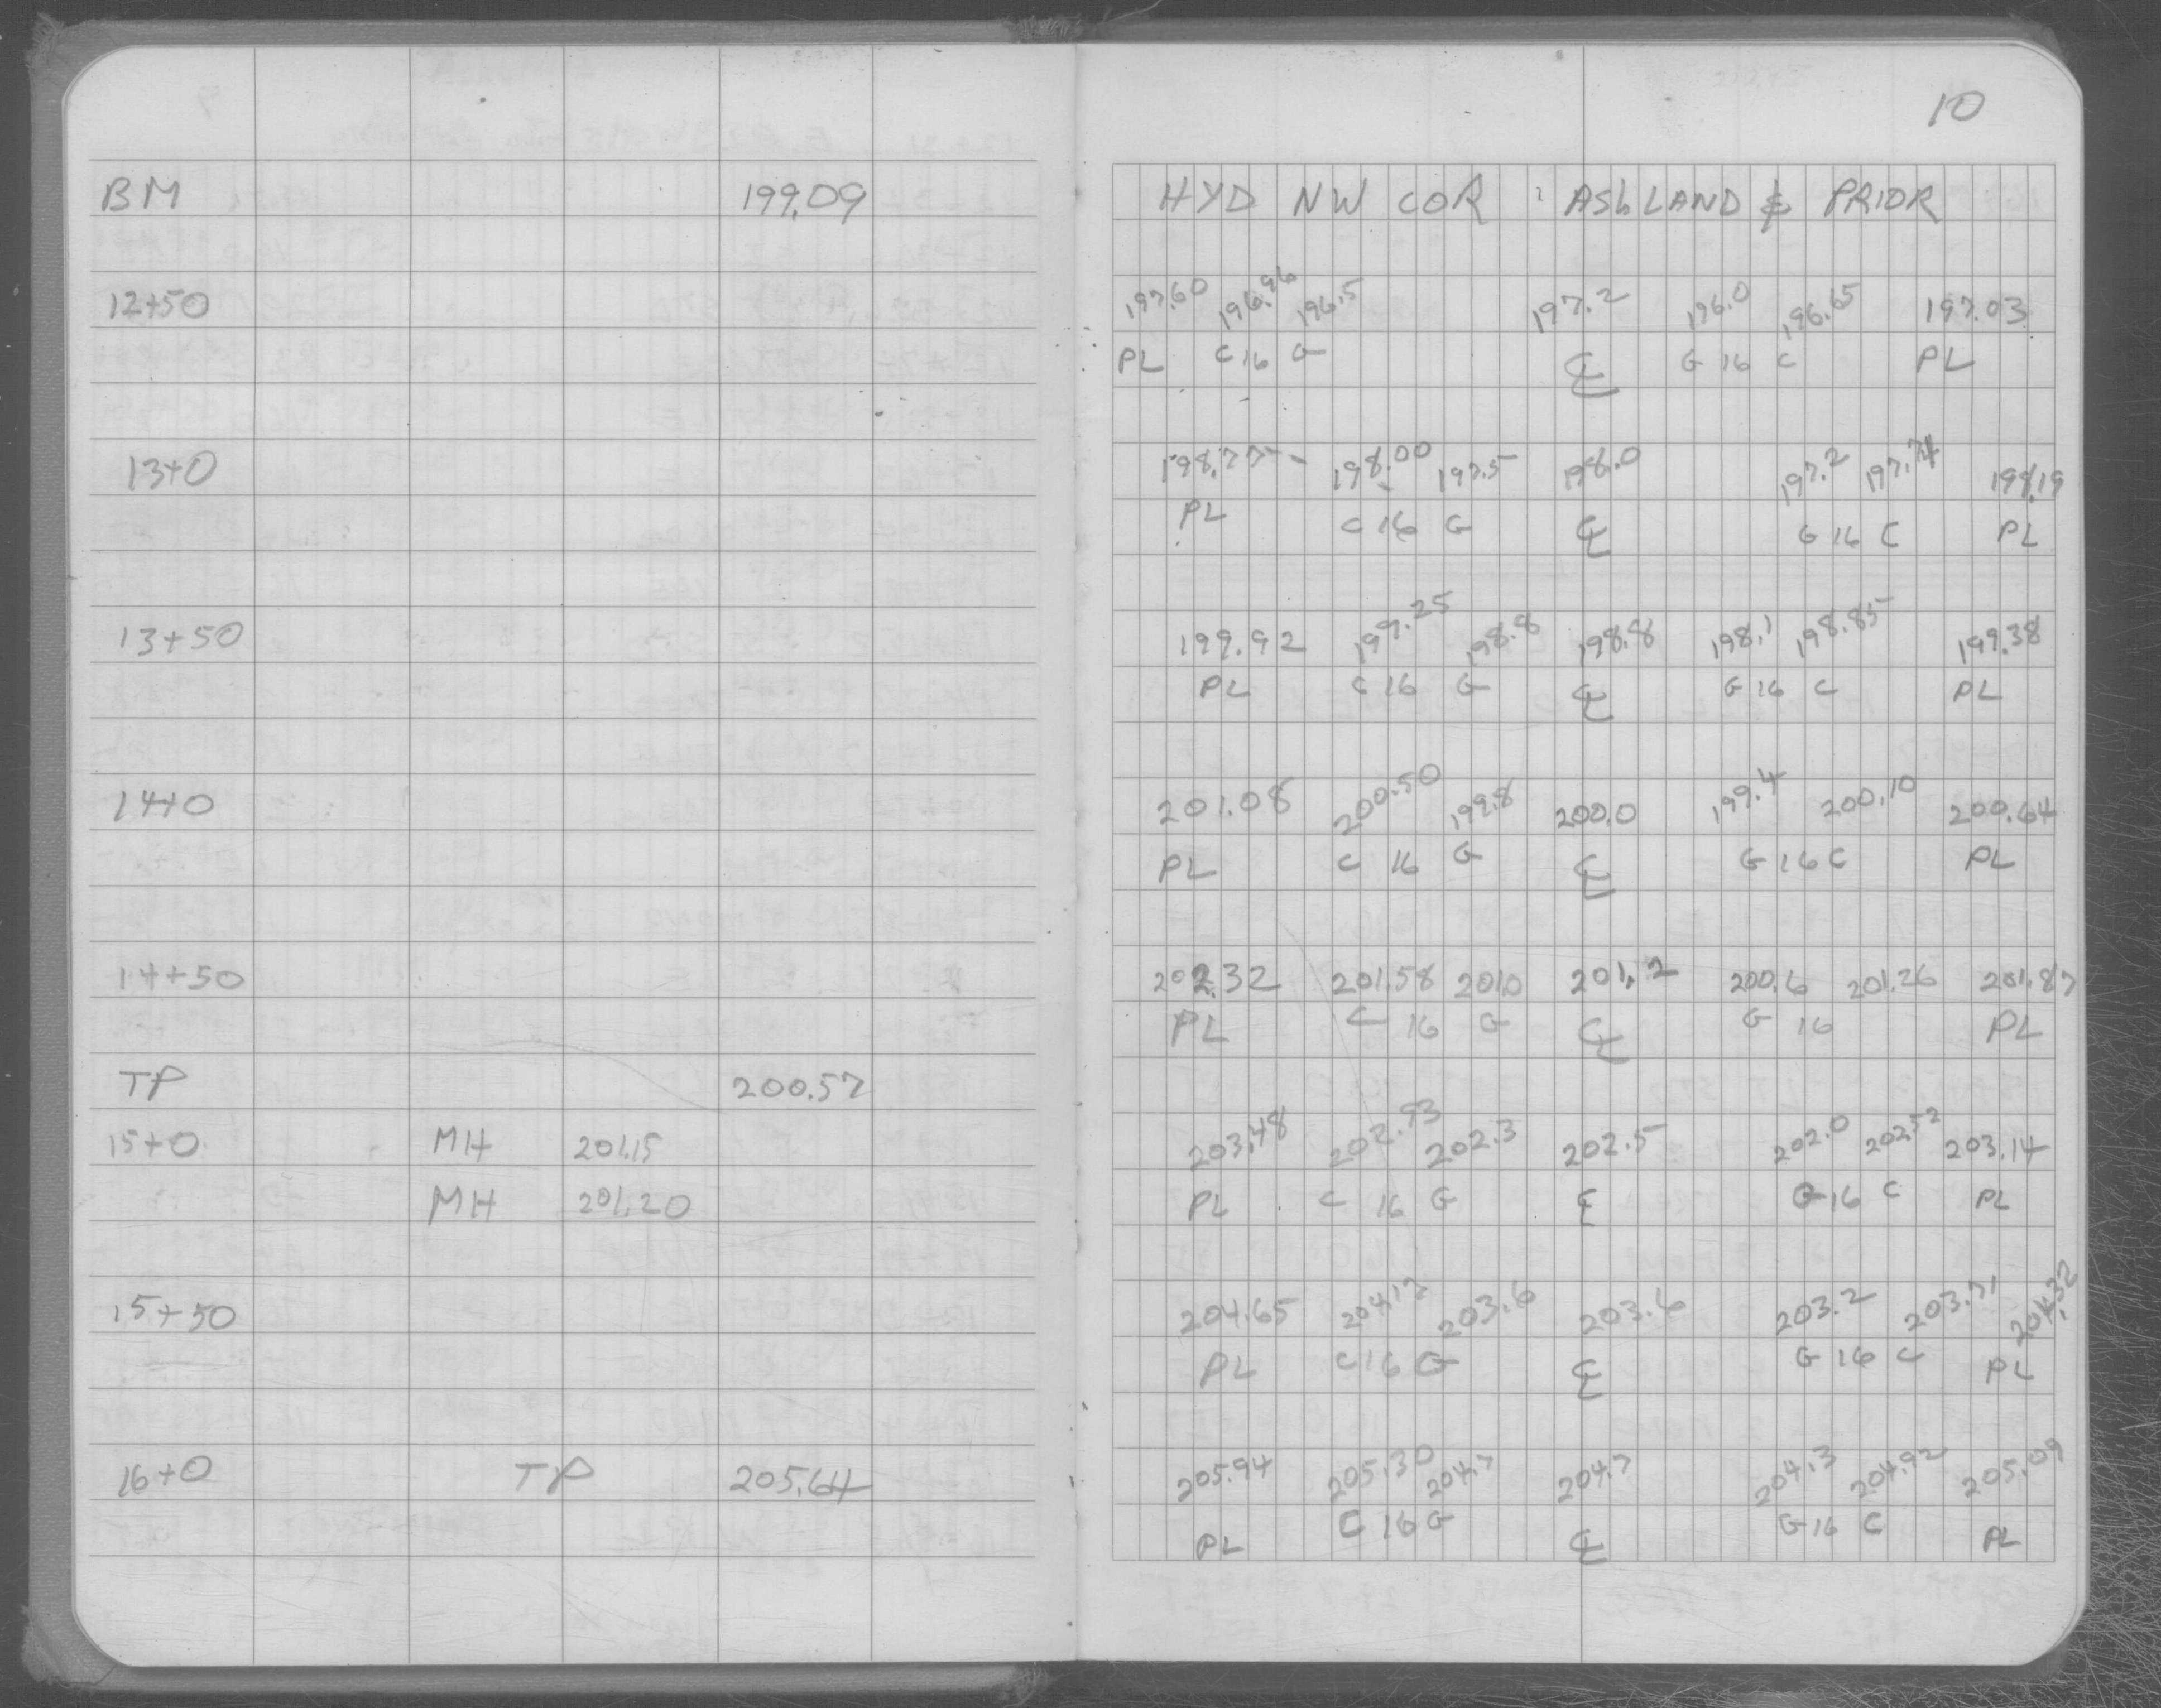 10
BM 199.09 HYD NW COR ASHLAND & PRIOR
12+50 197.60 196.96 196.5 197.2 196.0 196.65 197.03
PL C 16 G ℄ G 16 C PL
13+0 198.77 198.00 197.5 198.0 197.2 197.74 198.19
PL C 16 G ℄ G 16 C PL
13+50 199.92 199.25 198.8 198.8 198.1 198.85 199.38
PL C 16 G ℄ G 16 C PL
14+0 201.08 200.50 199.8 200.0 199.4 200.10 200.64
PL C 16 G ℄ G 16 C PL
14+50 202.32 201.58 201.0 201.2 200.6 201.26 201.87
PL C 16 G ℄ G 16 PL
TP 200.57
15+0 MH 201.15 203.48 202.93 202.3 202.5 202.0 202.52 203.14
MH 201.20 PL C 16 G ℄ G 16 C PL
15+50 204.65 204.17 203.6 203.6 203.2 203.71 204.32
PL C 16 G ℄ G 16 C PL
16+0 TP 205.64 205.94 205.30 204.7 204.7 204.3 204.92 205.09
PL C 16 G ℄ G 16 C PL